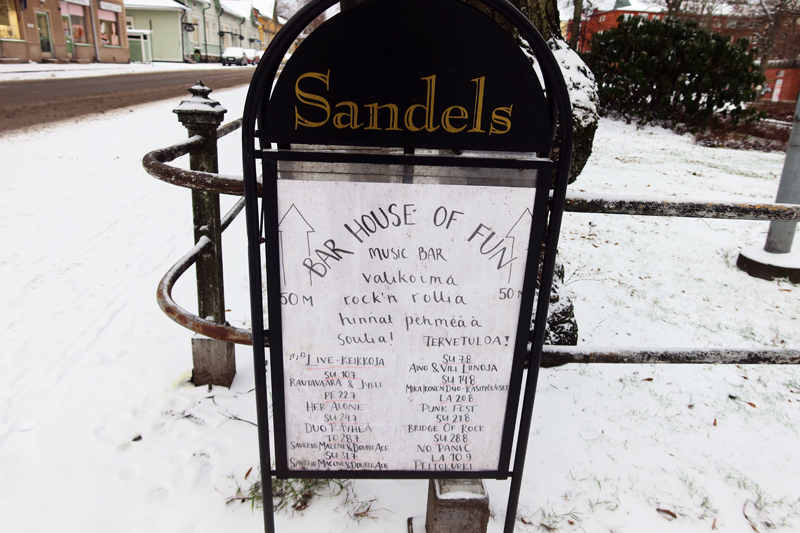 Sandels
BAR HOUSE OF FUN
MUSIC BAR
valikoima
50 M rock'n rollia 50 M
hinnat pehmeää
soulia! TERVETULOA!
LIVE-KEIKKOJA
SU 10.7
RAUTAVAARA & JYLLI
PE 22.7
HER ALONE
SU 24.7
DUO RÄYHEÄ
TO 28.7
SAVERIO MACCNE & DOUBLE ACE
SU 31.7
SAVERIO MACCNE & DOUBLE ACE
SU 7.8
AINO & VILI LIINOJA
SU 14.8
MIKA IKONEN DUO
LA 20.8
PUNK FEST
SU 21.8
BRIDGE OF ROCK
SU 28.8
NO PANIC
LA 10.9
PELTOKURKI